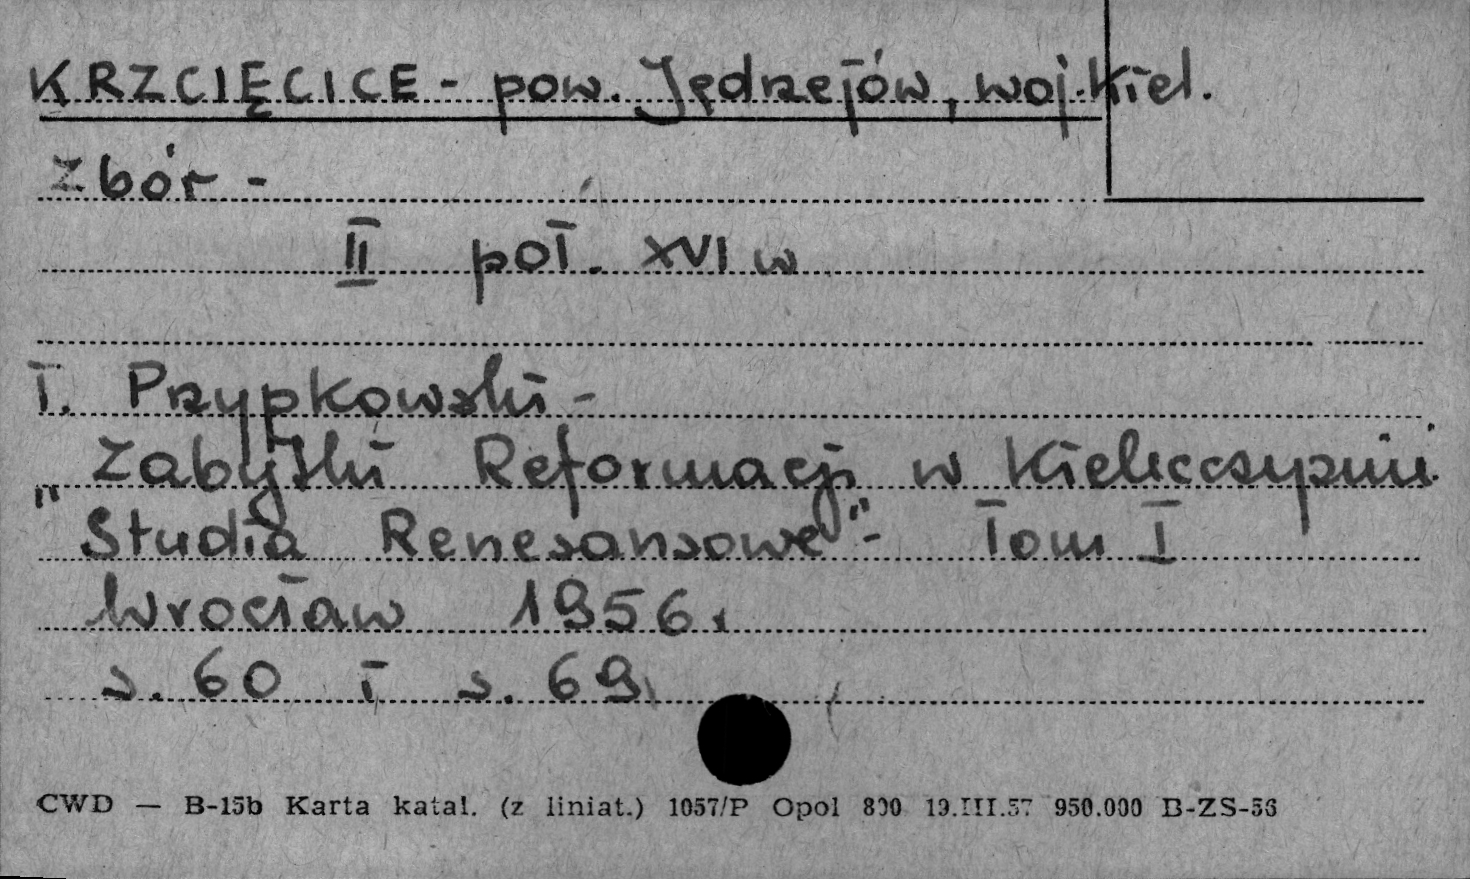 KRZCIĘCICE - pow. Jędrzejów, woj. Kiel.
Zbór -
II poł. XVI w
T. Przypkowski -
Zabytki Reformacji w Kielecczyźnie.
"Studia Renesansowe" - Tom I
Wrocław 1956.
s. 60 i s. 69
CWD — B-15b Karta katal. (z liniat.) 1057/P Opol 800 19.III.57 950.000 B-ZS-56